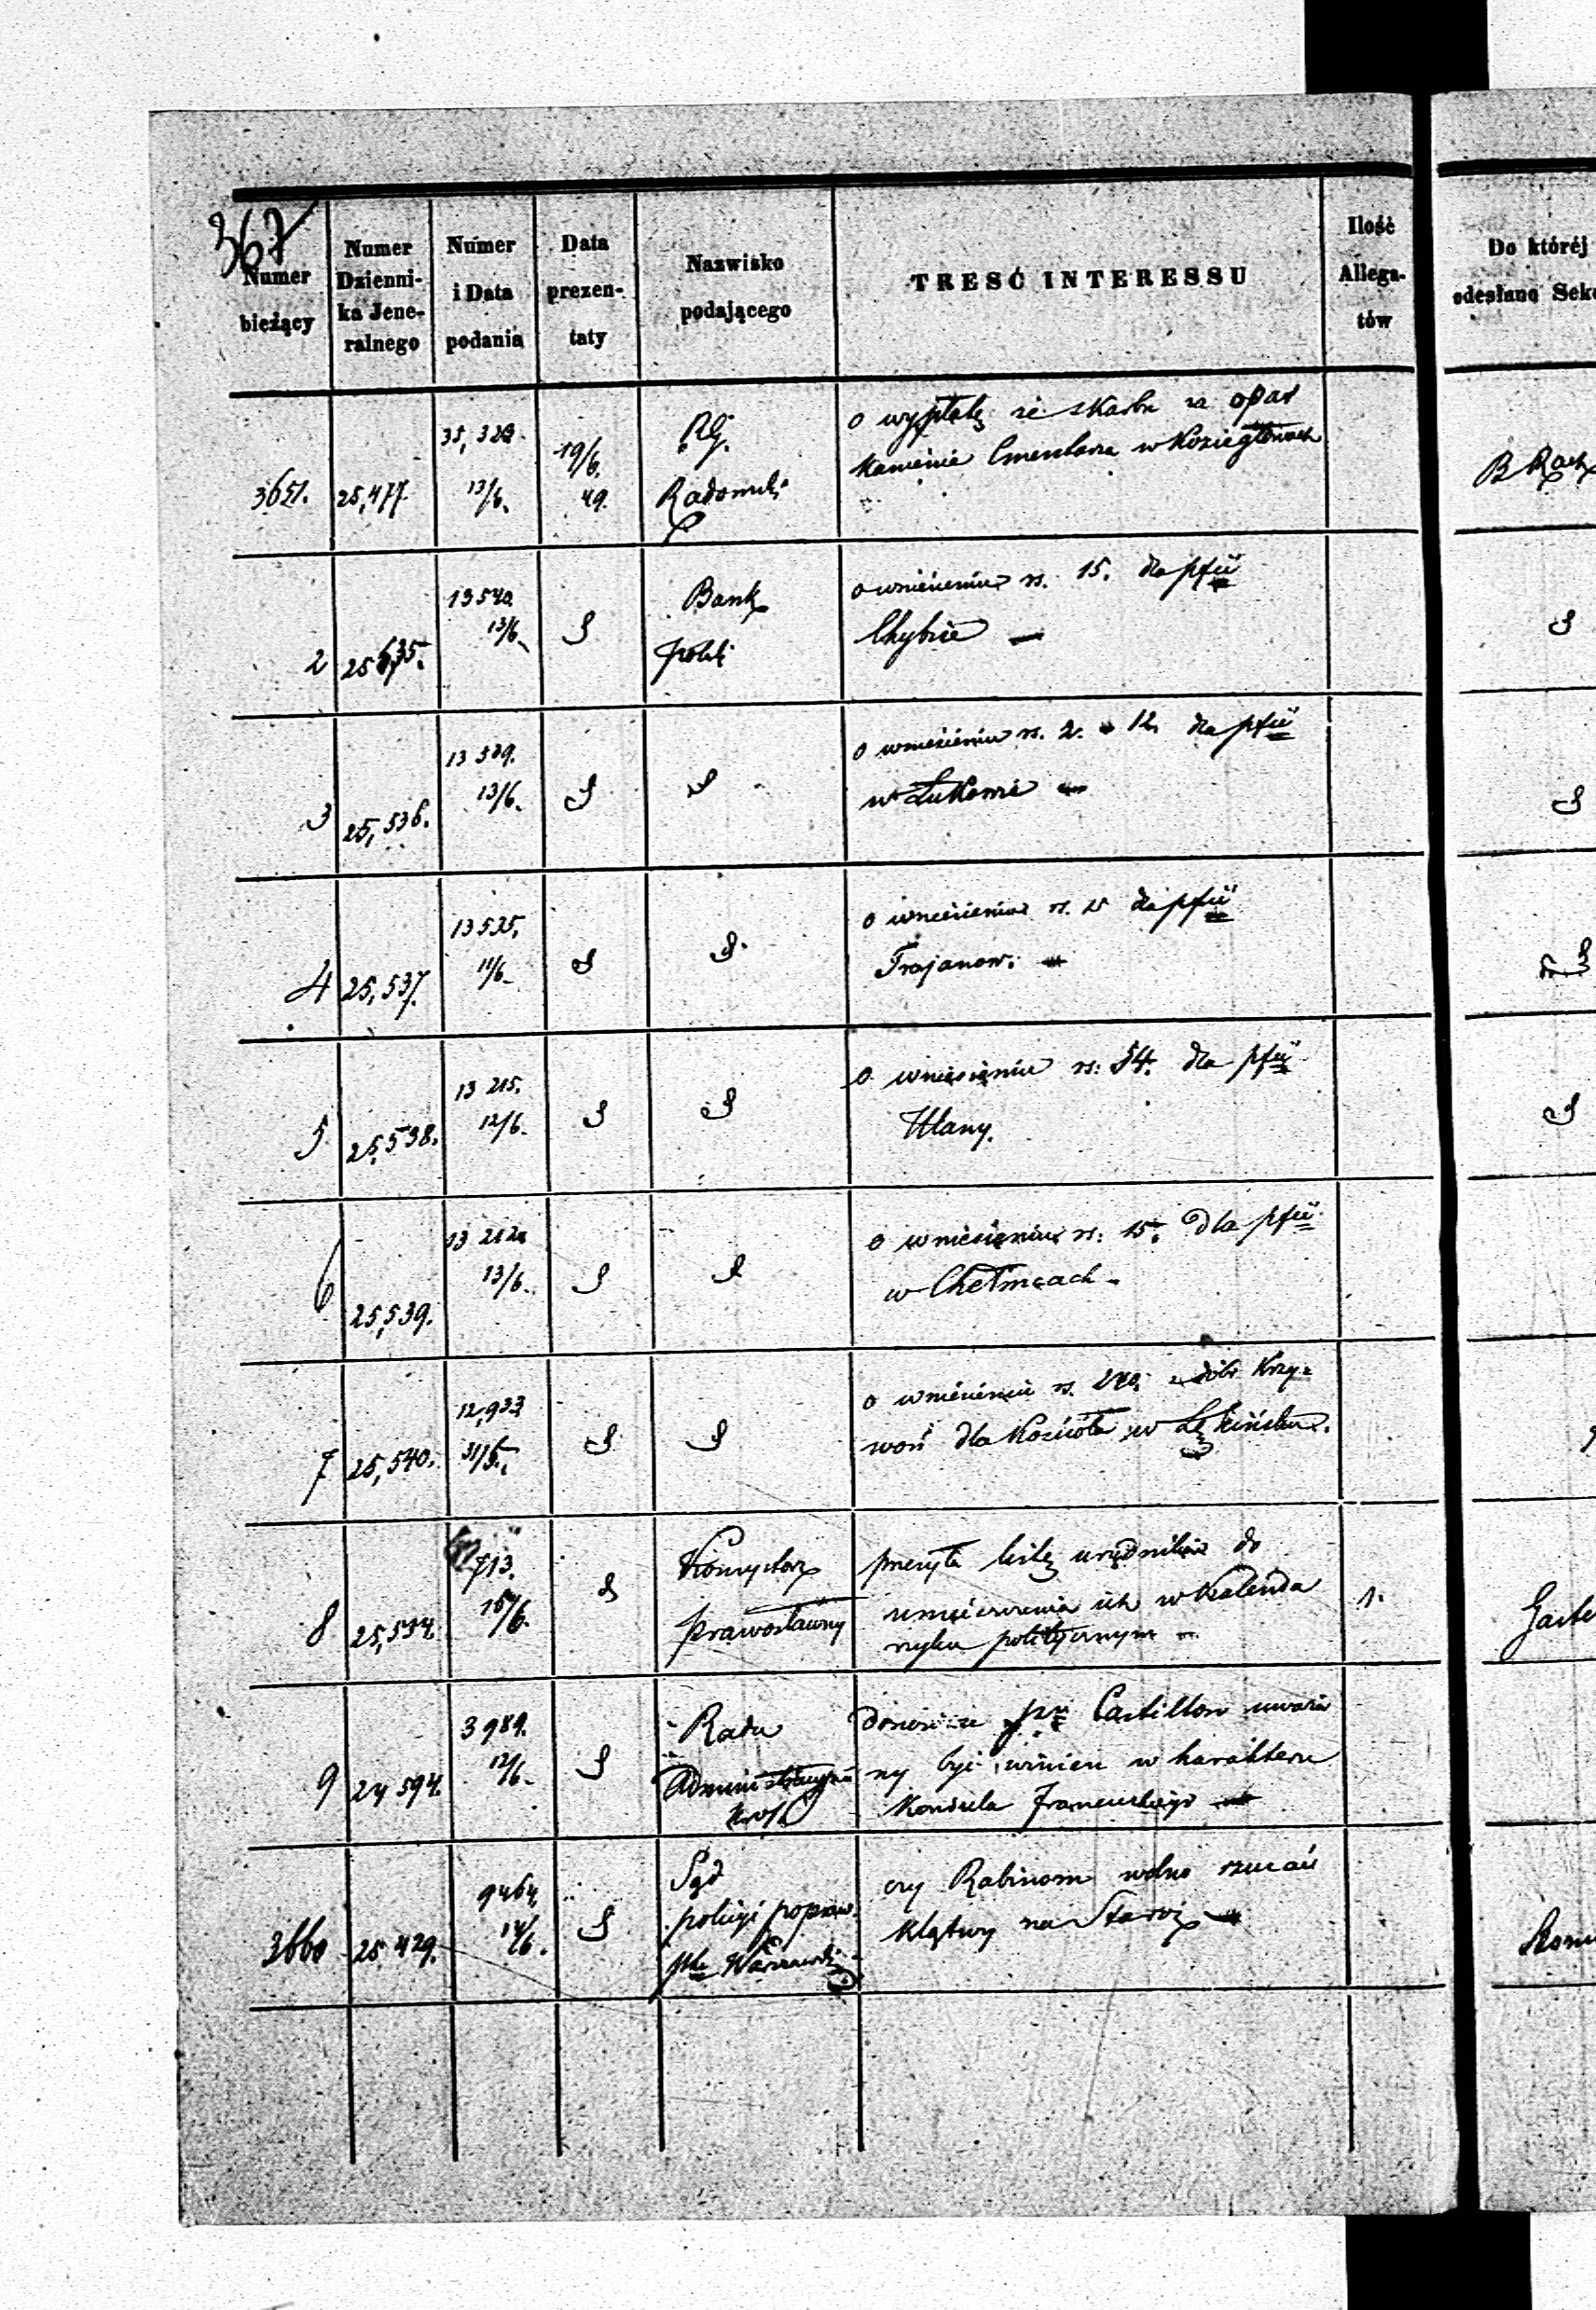 367
Numer bieżący
Numer Dzienni-ka Jene-ralnego
Numer i Data podania
Data prezen-taty
Nazwisko podającego
TRESĆ INTERESSU
Ilość Allega-tów
Do któréj
odesłano Sek
3651. 25,477. 13/6. 19/6. 49. RG. Radomski
o wypłatę ze skarbu za opar
kanienie Cmentarza w Koziegłowach
2 13540. 13/6. Bank polski
o wniesieniu rs. 15. dla pfii
Chybice
3 25,536. 13539. 13/6.
o wniesieniu rs. 2. 12. dla pfii
w Łukowie
4 25,537. 13535. 11/6.
o wniesieniu rs. 15 dla pfii
Trojanow.
5 25,538. 13215. 12/6.
o wniesieniu rs: 54. dla pfii
Ulany.
6 25,539. 13/6.
o wniesieniu rs: 15. dla pfii
w Chełmcach
7 25,540. 12,933
o wniesieniu rs. dóbr Krzy=
woń dla Kościoła w
8 25,534. 713. 15/6. Konsystorz prawosławny
przesyła listę urzędników do
umieszczenia ich w Kalenda
rzyku politycznym
1.
9 24594. 3989. 12/6. Rada Administracyjna
donosi że Castillon uważa
ny być winien w harakterze
Konsula Francuskiego
3660 25429. 9464. 14/6. Sąd policyi popraw. Warszawski
czy Rabinom wolno rzucać
klątwy na Staroz